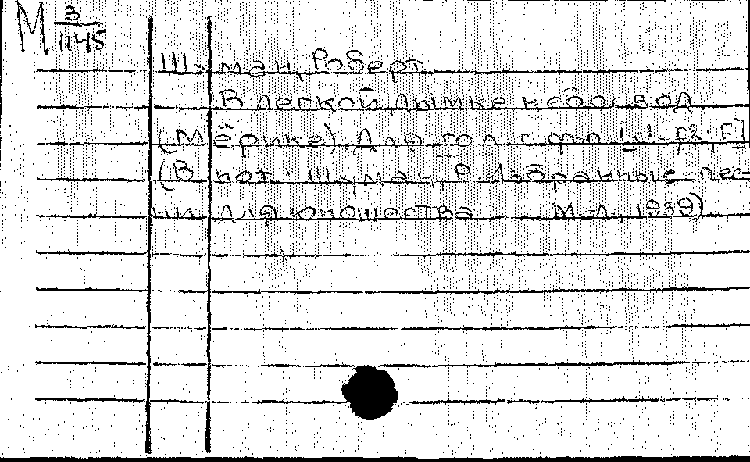 М 3/1145
Шуман, Роберт
В легкой дымке небосвод
(Мёрике). Для гол. с фп. [f²]
(В нот. Шуман, Р. Избранные пес-
ни для юношества М.-Л., 1939).